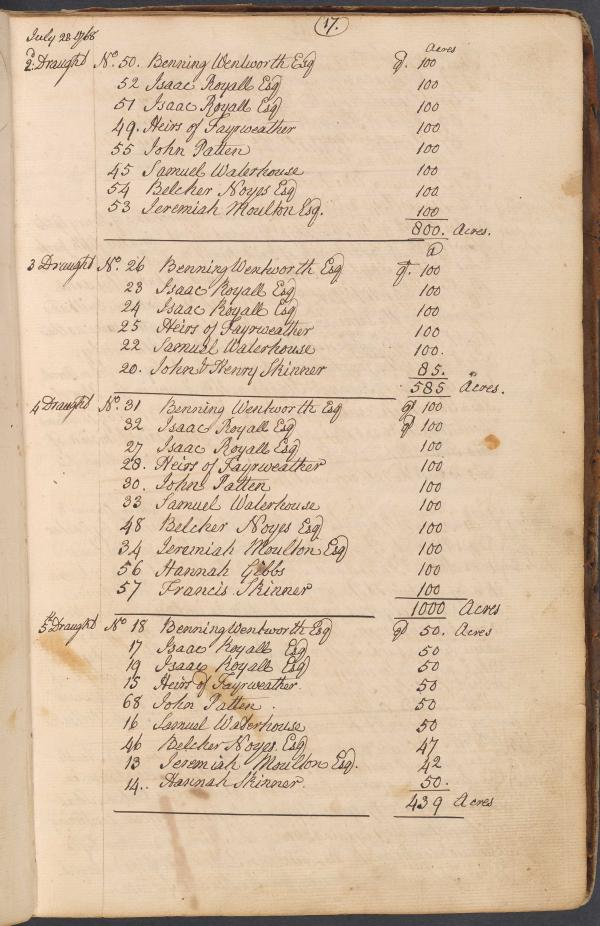 17.
July 28 1768
Acres
2d. Draught No. 50. Benning Wentworth Esq 100
52 Isaac Royall Esq 100
51 Isaac Royall Esq 100
49. Heirs of Fayrweather 100
55 John Patten 100
45 Samuel Waterhouse 100
54 Belcher Noyes Esq 100
53 Jeremiah Moulton Esq. 100
800. Acres.
a
3 Draught No. 26 Benning Wentworth Esq 100
23 Isaac Royall Esq 100
24 Isaac Royall Esq 100
25 Heirs of Fayrweather 100
22 Samuel Waterhouse 100.
20. John & Henry Skinner 85.
585 Acres.
4 Draught No. 31 Benning Wentworth Esq 100
32 Isaac Royall Esq 100
27 Isaac Royall Esq 100
28. Heirs of Fayrweather 100
30. John Patten 100
33 Samuel Waterhouse 100
48 Belcher Noyes Esq 100
34 Jeremiah Moulton Esq 100
56 Hannah Gibbs 100
57 Francis Skinner 100
1000 Acres
5th Draught No 18 Benning Wentworth Esq 50. Acres
17 Isaac Royall Esq 50
19 Isaac Royall Esq 50
15 Heirs of Fayrweather. 50
68 John Patten. 50
16 Samuel Waterhouse 50
46 Belcher Noyes. Esq 47
13 Jeremiah Moulton Esq. 42
14.. Hannah Skinner. 50.
439 Acres